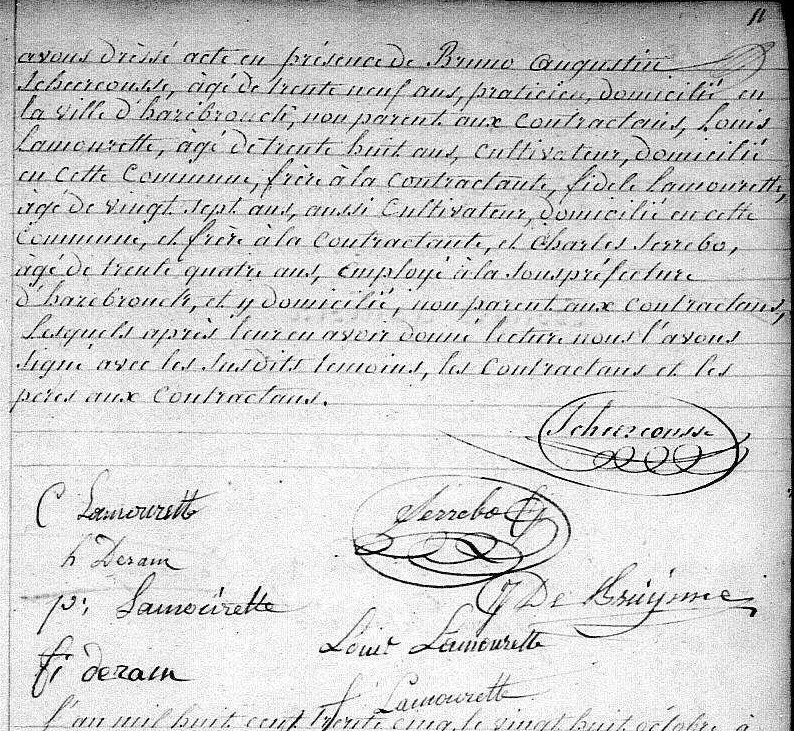 11
avons dressé acte en présence de Bruno Augustin
Scheercousse, âgé de trente neuf ans, praticien, domicilié en
la ville d'hazebrouck, non parent aux contractans, Louis
Lamourette, âgé de trente huit ans, Cultivateur, domicilié
en cette Commune, frère à la contractante, fidele Lamourette,
âgé de vingt sept ans, aussi Cultivateur, domicilié en cette
Commune, et frère à la Contractante, et Charles Serrebo,
âgé de trente quatre ans, employé à la souspréfecture
d'hazebrouck, et y domicilié, non parent aux contractans,
lesquels après leur en avoir donné lecture nous l'avons
signé avec les susdits temoins, les Contractans et les
pères aux Contractans.
Scheercousse
C Lamourette
Serrebo
h Deram
De Bruynne
p: Lamoeirette
Louis Lamourette
fi deram
f Lamourette
l'an mil huit cent trente cinq, le vingt huit octobre, à